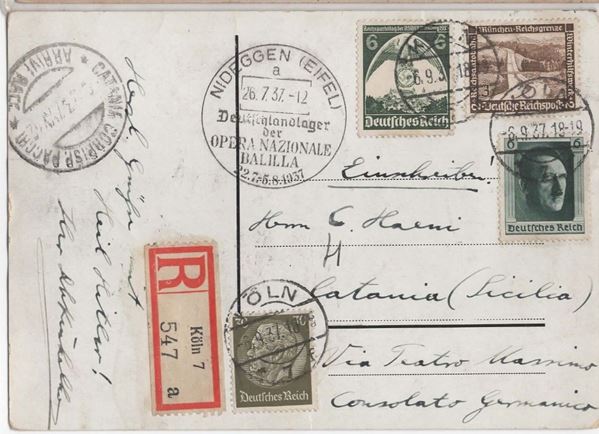 NIDEGGEN (EIFEL)
a
26.7.37.-12
Deutschlandlager
der
OPERA NAZIONALE
BALILLA
22.7.-5.8.1937
CATANIA CORRISP. PACCHI
ARRIVI RACC.
6
Deutsches Reich
München-Reichsgrenze
Deutsche Reichspost
6.9.37.18-19
-6.9.37.18-19
6
Deutsches Reich
Einschreiben
Herrn C. Haeni
Catania (Sicilia)
Via Teatro Massimo
Consolato Germanico
Herzl. Grüße mit
Heil Hitler!
R
Köln 7
547 a
KÖLN
Deutsches Reich